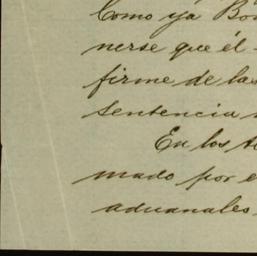 Como ya Bo
nerse que él
firme de las
sentencia
En los
mado por e
aduanales